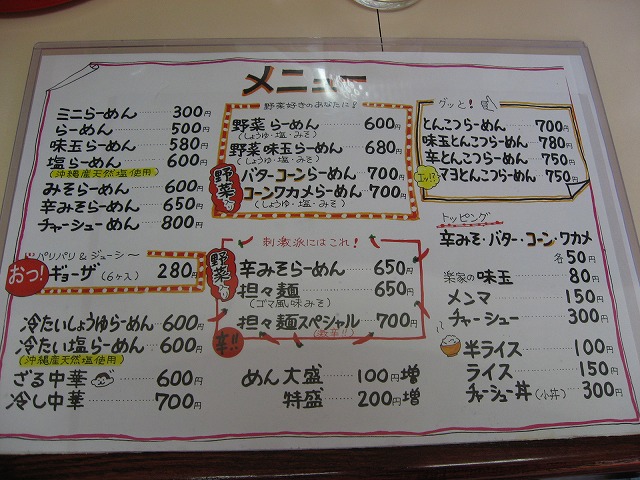 メニュー
ミニらーめん 300円
らーめん 500円
味玉らーめん 580
塩らーめん 600円
(沖縄産天然塩使用)
みそらーめん 600円
辛みそらーめん 650円
チャーシューめん 800円
パリパリ&ジューシ〜
おっ!
ギョーザ (6ヶ入) 280円
冷たいしょうゆらーめん 600円
冷たい塩らーめん 600円
(沖縄産天然塩使用)
ざる中華 600円
冷し中華 700円
野菜好きのあなたに!
野菜らーめん 600円
(しょうゆ・塩・みそ)
野菜味玉らーめん 680円
(しょうゆ・塩・みそ)
野菜入り
バターコーンらーめん 700円
コーンワカメらーめん 700円
(しょうゆ・塩・みそ)
刺激派にはこれ!
野菜入り
辛みそらーめん 650円
担々麺 650円
(ゴマ風味みそ)
担々麺スペシャル 700円
(激辛!!)
辛!!
めん大盛 100円増
特盛 200円増
グッと!
とんこつらーめん 700円
味玉とんこつらーめん 780
辛とんこつらーめん 750円
エッ!?
マヨとんこつらーめん 750円
トッピング
辛みそ・バター・コーン・ワカメ
各50円
楽家の味玉 80円
メンマ 150円
チャーシュー 300円
半ライス 100円
ライス 150円
チャーシュー丼(小丼) 300円